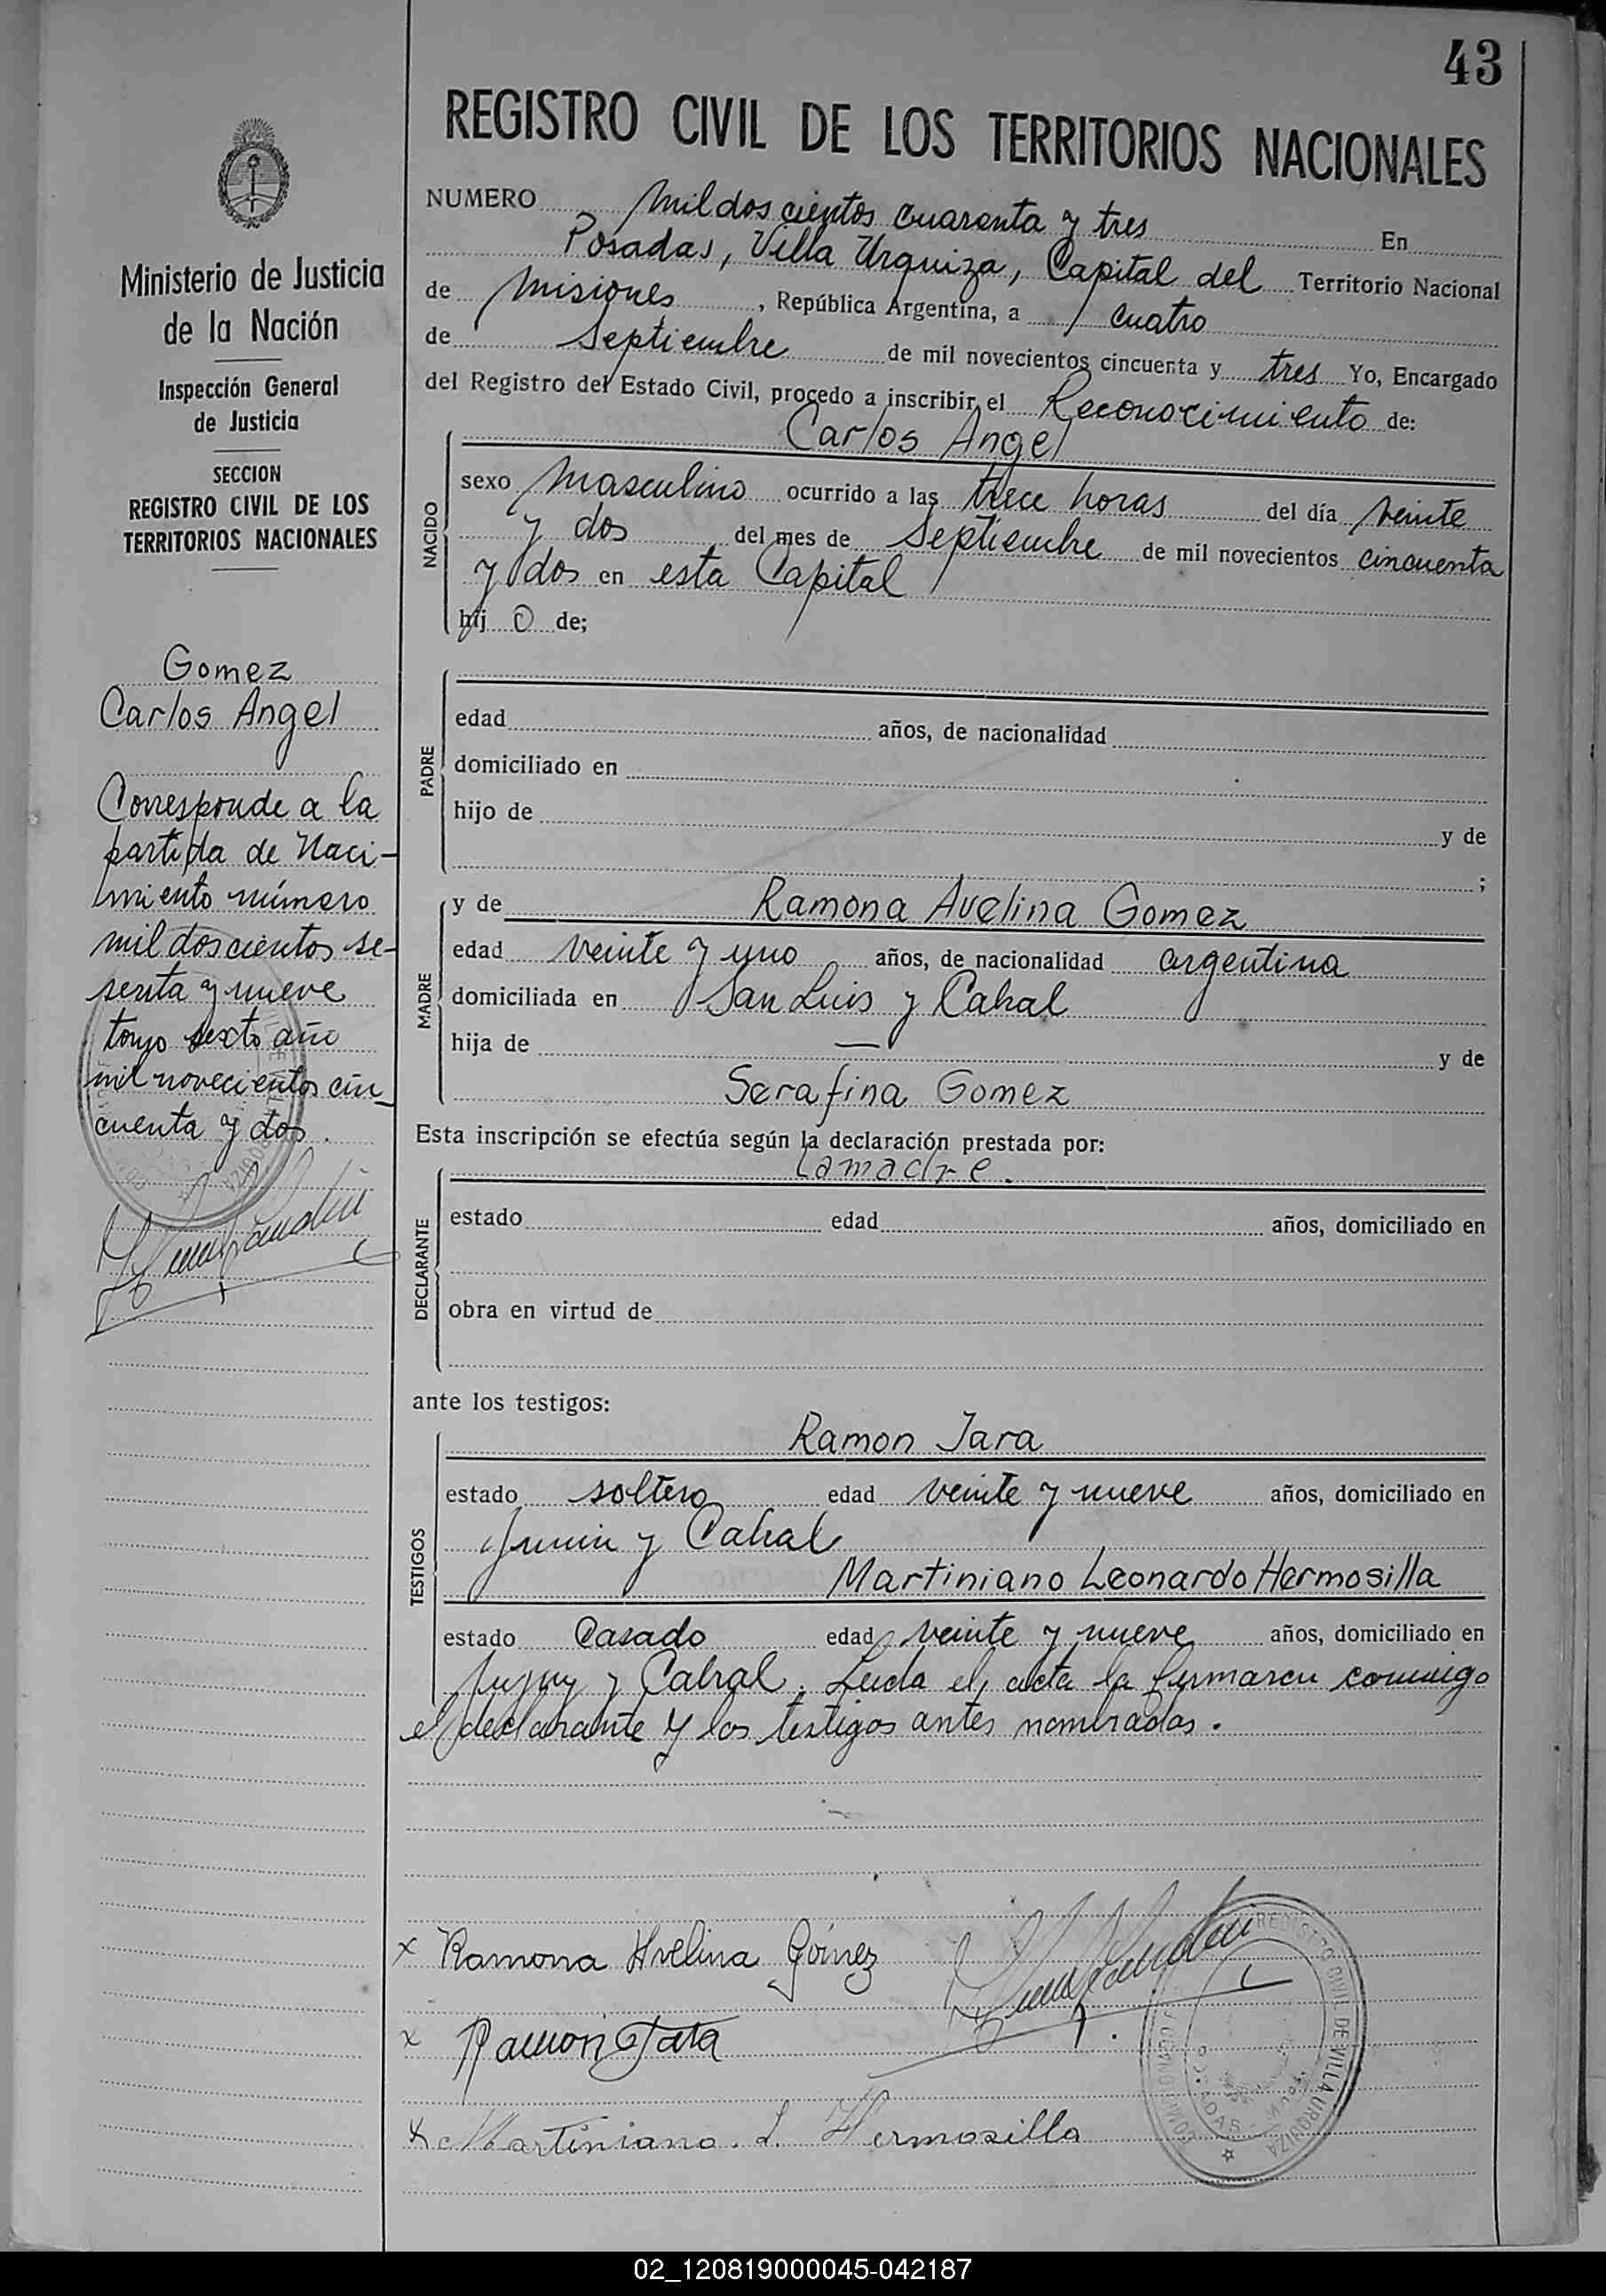 43
REGISTRO CIVIL DE LOS TERRITORIOS NACIONALES
Ministerio de Justicia
de la Nación
Inspección General
de Justicia
SECCION
REGISTRO CIVIL DE LOS
TERRITORIOS NACIONALES
Gomez
Carlos Angel
Corresponde a la
partida de Naci-
miento número
mil doscientos se-
senta y nueve
tomo sexto año
mil novecientos cin-
cuenta y dos.
NUMERO mil dos cientos cuarenta y tres En
Posadas, Villa Urquiza, Capital del Territorio Nacional
de Misiones, República Argentina, a cuatro
de Septiembre de mil novecientos cincuenta y tres Yo, Encargado
del Registro del Estado Civil, procedo a inscribir el Reconocimiento de:
Carlos Angel
NACIDO
sexo Masculino ocurrido a las trece horas del día veinte
y dos del mes de Septiembre de mil novecientos cincuenta
y dos en esta Capital
hij o de;
PADRE
edad años, de nacionalidad
domiciliado en
hijo de y de
;
MADRE
y de Ramona Avelina Gomez
edad veinte y uno años, de nacionalidad argentina
domiciliada en San Luis y Cabral
hija de — y de
Serafina Gomez
Esta inscripción se efectúa según la declaración prestada por:
la madre.
DECLARANTE
estado edad años, domiciliado en
obra en virtud de
ante los testigos:
TESTIGOS
Ramon Jara
estado soltero edad veinte y nueve años, domiciliado en
Junin y Cabral
Martiniano Leonardo Hermosilla
estado Casado edad veinte y nueve años, domiciliado en
Jujuy y Cabral. Leida el acta la firmaron conmigo
el declarante y los testigos antes nombrados.
x Ramona Avelina Gómez
x Ramon Jara
x Martiniano. L. Hermosilla
REGISTRO CIVIL DE VILLA URQUIZA
POSADAS
02_120819000045-042187